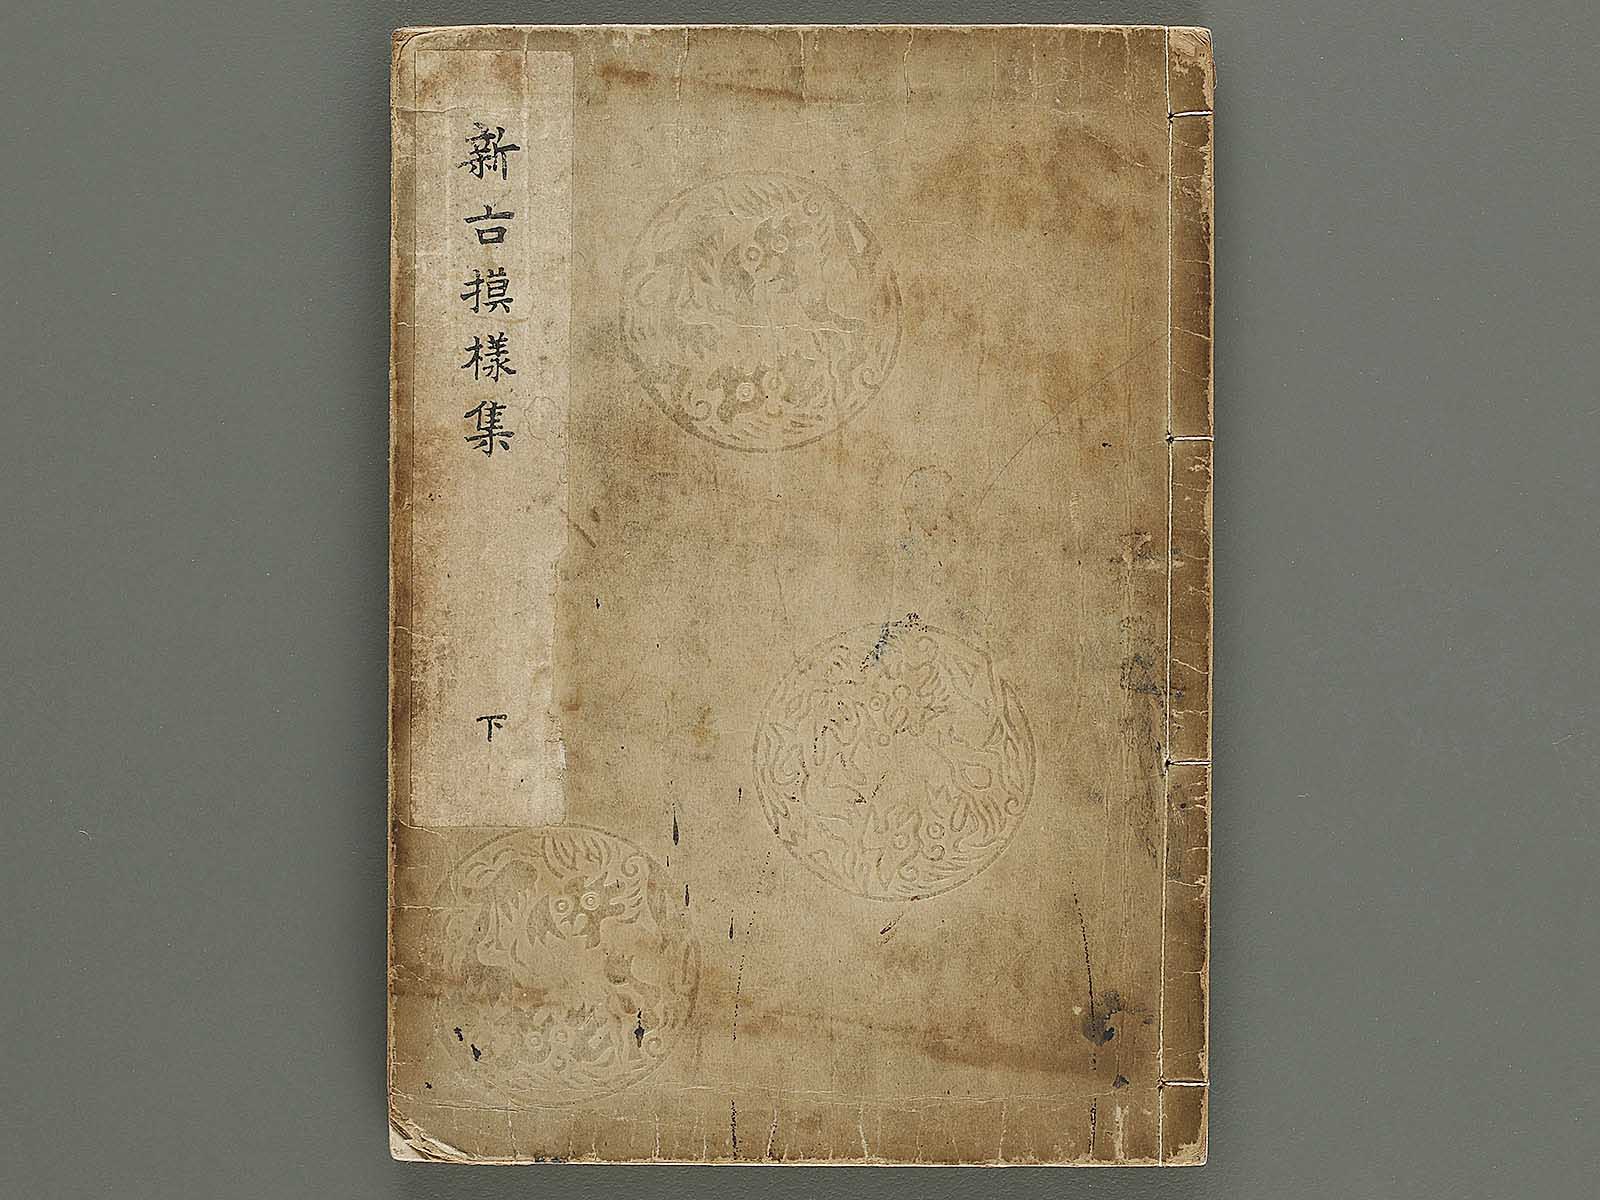 新古摸様集
下